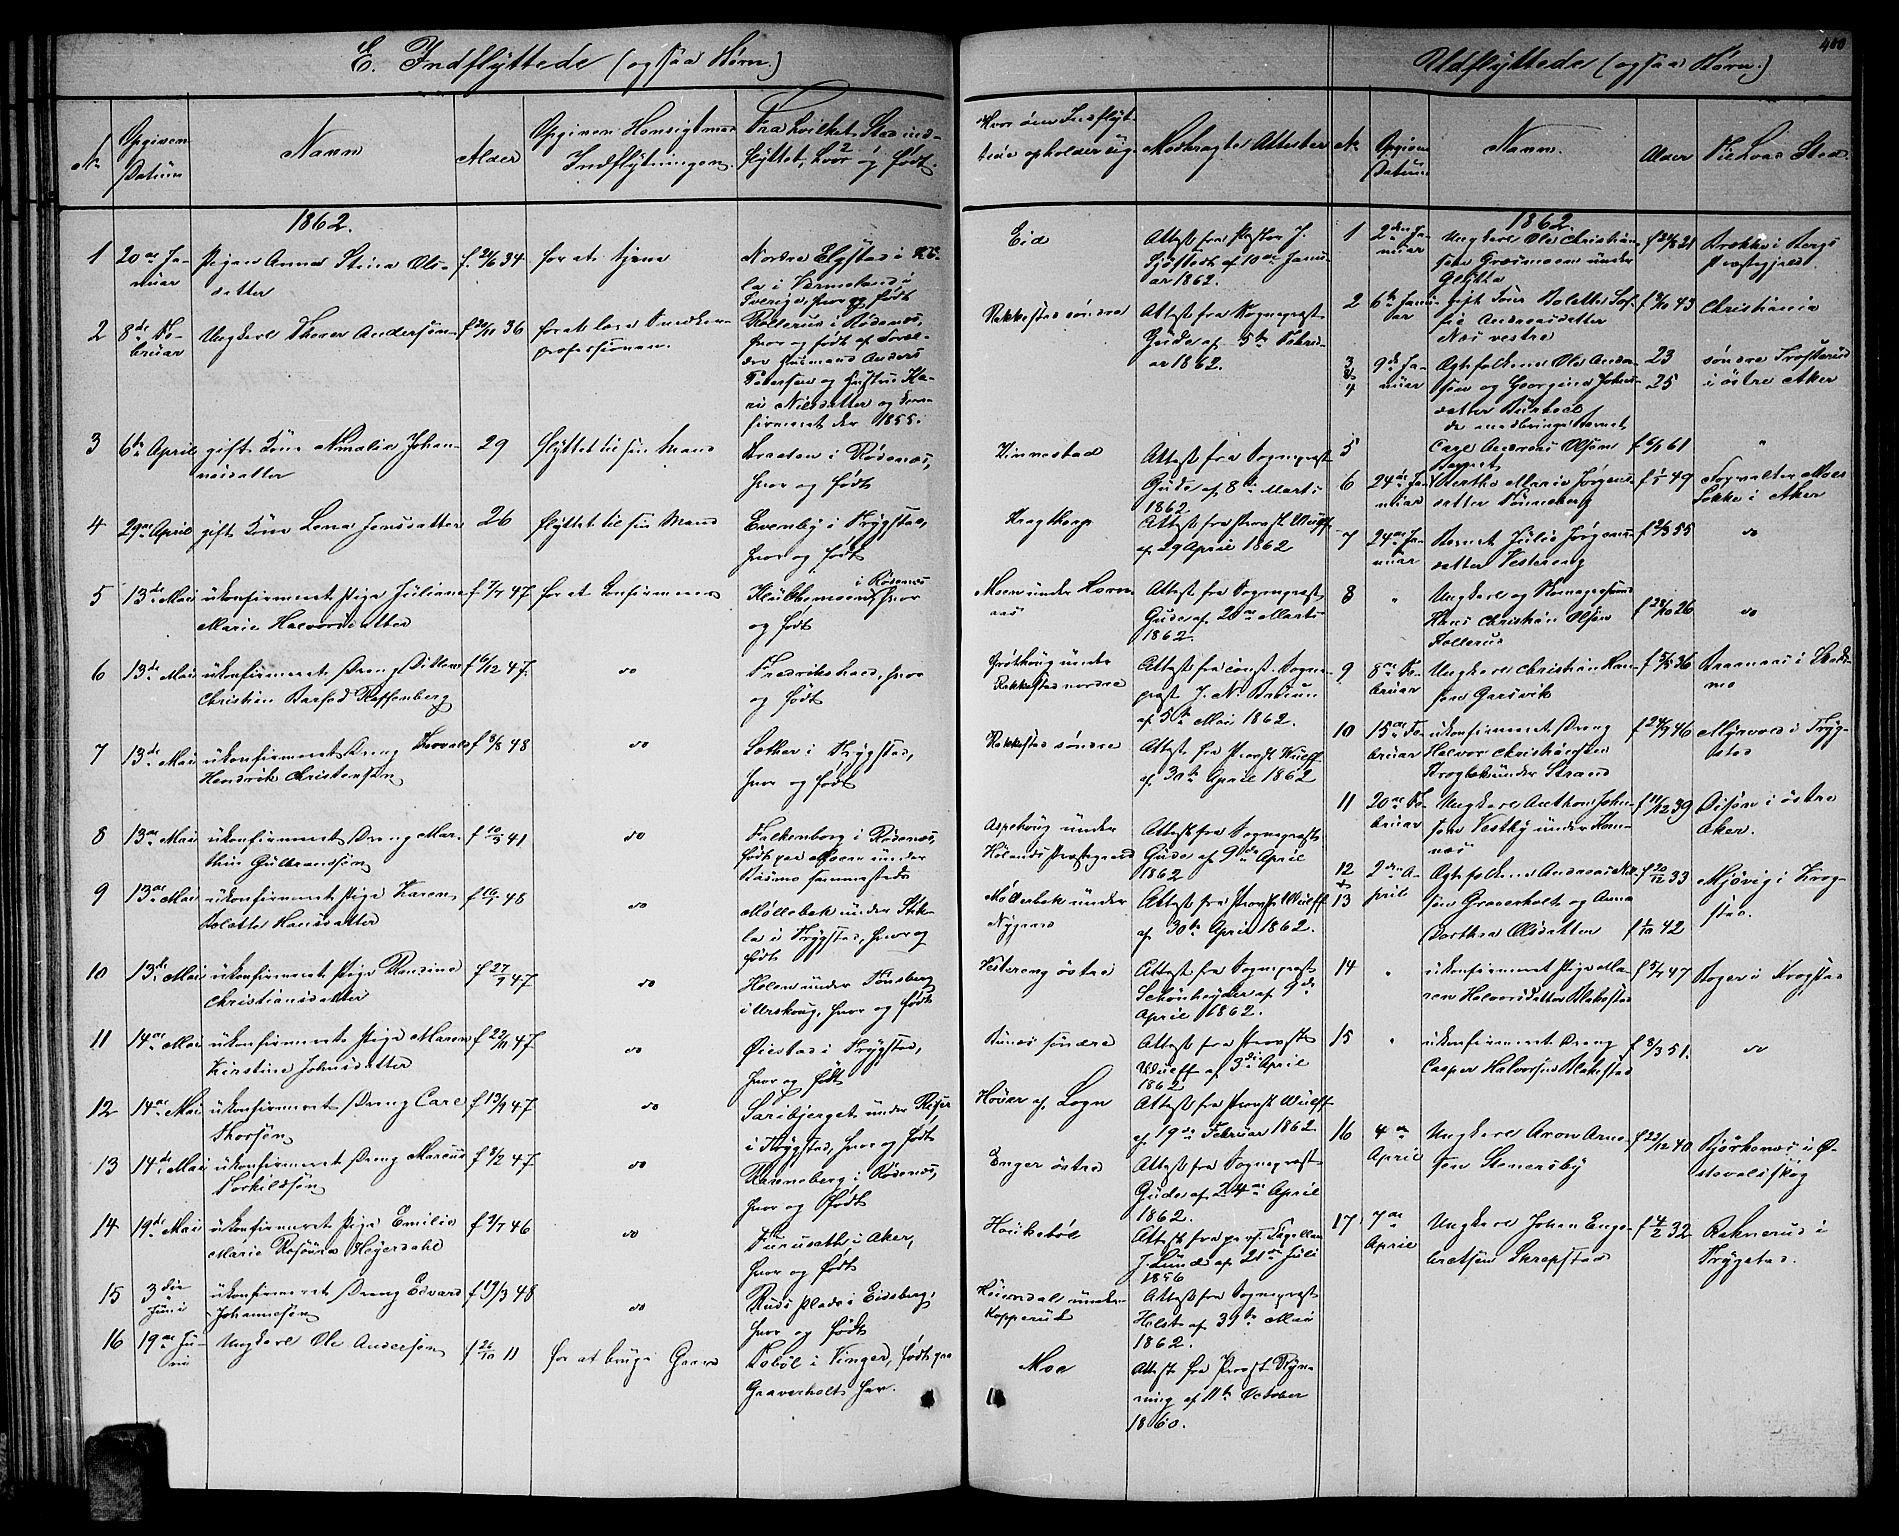 E. Indflyttede (ogsaa Børn.)
Udflyttede (ogsaa Børn.)
400
No
Opgiven
Datum
Navn
Alder
Opgiven Hensigt med
Indflytningen
Fra hvilket Sted ind-
flyttet, hvor og født
Hvor den Indflyt-
tede opholder sig.
Medbragte Attester
No
Opgiven
Datum
Navn.
Alder
Til hvad Sted.
1862.
1
20de Ja-
nuar
Pigen Anna Stina Ols-
datter
34
for at tjene
Sverige, hvor og født
Eid
Attest fra Pastor J.
af 10de Janu-
ar 1862.
2
8de Fe-
bruar
Ungkarl Thorer Andersen
36
for at lære Snedker-
professionen.
i Rødenæs,
hvor og født af Foræl-
dre Husmand Anders
Petersen og Hustru Ka-
ri Nilsdatter og kon-
firmeret der 1855.
Rakkestad søndre
Attest fra Sogneprest
Gude af 5te Febru-
ar 1862.
3
6te April
gift Kone Amalia Johan-
nesdatter
29
flyttet til sin Mand
Braaten i Rødenæs,
hvor og født
Kinnestad
Attest fra Sogneprest
Gude af 8de Marts
1862.
4
29de April
gift Kone Lena Jensdatter
26
flyttet til sin Mand
Evenby i Trygstad,
hvor og født
Kragtorp
Attest fra Provst Wulff
af 29 April 1862
5
13de Mai
ukonfirmeret Pige Juliane
Marie Halvorsdatter
47
for at konfirmeres
Klukkemoen i Rødenæs
hvor
og født
Moen under Horn-
næs
Attest fra Sogneprest
Gude af 20de Marts
1862.
6
13de Mai
ukonfirmeret Dreng Ditlew
Christian Barfod Kaffenberg
f 6/12 47.
do
Fredrikshald, hvor
og født
under
Rakkestad nordre
Attest fra const. Sogne-
prest J. N. Bruun
af 5te Mai 1862.
7
13de Mai
ukonfirmeret Dreng Thorvald
Hendrik Christensen
f 3/8 48
do
Sæther i Trygstad,
hvor og født
Rakkestad søndre
Attest fra Provst Wulff
af 30te April 1862
8
13de Mai
ukonfirmeret Dreng Mar-
thin Gulbrandsen
f 10/3 41
do
Falkenborg i Rødenæs,
født paa Moen under
Rasmo sammesteds
Aspehoug under
Hølands Præstegaard
Attest fra Sogneprest
Gude af 9de April
1862
9
13de Mai
ukonfirmeret Pige Karen
Bolette Hansdatter
48
do
Møllebek under Stik-
la i Trygstad, hvor og
født
Møllerbek under
Nygaard
Attest fra Provst Wulff
af 30te April 1862.
10
13de Mai
ukonfirmeret Pige Ransine
Christiansdatter
f 27/7 47
do
Holen under Tønsberg
i Urskoug, hvor og født
Vestereng østre
Attest fra Sogneprest
Schønheyder af 9de
April 1862.
11
14de Mai
ukonfirmeret Pige Maren
Kirstine Johnsdatter
f 22/11 47
do
Øiestad i Trygstad,
hvor og født
Bunæs søndre
Attest fra Provst
Wulff af 3die April
1862
12
14de Mai
ukonfirmeret Dreng Carl
Thorsen
f 13/9 47
do
Saxibjerget under Riser
i Trygstad, hvor og født
Høver af Sogn
Attest fra Provst Wulff
af 19de Februar 1862.
13
14de Mai
ukonfirmeret Dreng Marcus
Torkildsen
f 2/2 47
do
Kareneberg i Rødenæs,
hvor og født
Enger østre
Attest fra Sogneprest
Gude af 24de April
1862.
14
19de Mai
ukonfirmeret Pige Emilie
Marie Rosova Heyerdahl
f 3/7 46
do
Furusæth i Aker,
hvor og født
Haikebøl
Attest fra pers. Capellan
J. Lund af 21de Juli
1856
15
3die
Juni
ukonfirmeret Dreng Edvard
Johannesen
f 19/3 48
do
Ruds plads i Eidsberg,
hvor og født
under
Kopperud
Attest fra Sogneprest
Holst af 30te Mai
1862.
16
19de Ju-
ni
Ungkarl Ole Andersen
f 26/10 11
for at bruge Gaard
Tobøl i Vinger, født paa
Graverholt her.
Moe
Attest fra Provst Ryn-
ning af 11te October
1860.
1862.
1
2den Ja-
nuar
Ungkarl Ole Christian-
sen Græsmoen under
21
Brække i Bergs
Præstegjeld.
2
6te Janu-
ar
gift Kone Bolette So-
fie Andreasdatter
Næs vestre
43
Christiania
3
&
4
9de Ja-
nuar
Ægtefolkene Ole Ander-
sen og Georgine Johans-
datter
de medbringe Barnet
23
25
søndre Trosterud
i østre Aker
5
Carl Andreas Olsen
61
"
6
24de Ja-
nuar
Barnet
Bertha Marie Jørgens-
datter Sønneberg
49
Forvalter Moes
Løkke i Aker
7
24de Ja-
nuar
Barnet Julie Jørgens-
datter Vestereng
55
do
8
"
Ungkarl og
Hans Christian Olsen
Kollerud
f 28/10 26
do
9
8de Fe-
bruar
Ungkarl Christian Han-
sen Garsvik
36
Braanaas i Skeds-
mo
10
15de Fe-
bruar
ukonfirmeret Dreng
Halvor Christiansen
Krogbek under Strand
f 24/9 46
Myrvold i Tryg-
stad
11
20de Fe-
bruar
Ungkarl Anthon John-
sen Vestby under Hor-
næs
f 11/12 39
i østre
Aker.
12
&
13
2den A-
pril
Ægtefolkene Andreas Nil-
sen Graverholt og Anna
Dorthea Olsdatter
f 20/12 33
f 1/10 42
Mjøvig i Krog-
stad.
14
"
ukonfirmeret Pige Ma-
ren Halvorsdatter Blakestad
47
Boger i Krogstad
15
"
ukonfirmeret Dreng
Casper Halvorsen Blakestad
f 8/3 51.
do
16
4de
April
Ungkarl Aron Arne-
sen Stenersby
f 22/12 40
Bjørkenæs i Ø-
stevoldskog
17
7de
April
Ungkarl Johan Enge-
bretsen Skrepstad
f 4/2 32
Raknerud i
Trygstad.